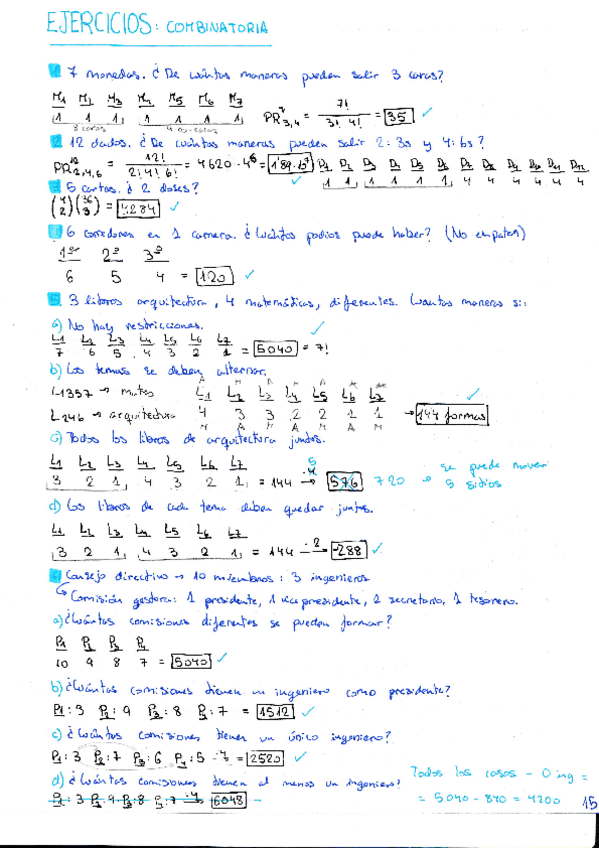 EJERCICIOS: COMBINATORIA
1 7 monedas. ¿De cuántas maneras pueden salir 3 caras?
M1 M2 M3 M4 M5 M6 M7
1 1 1 1 1 1 1 PR 7 3,4 = 7! / 3! 4! = 35 ✓
3 caras 4 no-caras
2 12 dados. ¿De cuántas maneras pueden salir 2: 3s y 4: 6s?
PR 12 2,4,6 = 12! / 2! 4! 6! = 4620 · 4^6 = 1'89·10^7 ✓ D1 D2 D3 D4 D5 D6 D7 D8 D9 D10 D11 D12
1 1 1 1 1 1 4 4 4 4 4 4
3 5 cartas. ¿2 doses?
(4 2)(36 3) = 4284 ✓
4 6 corredores en 1 carrera. ¿Cuántos podios puede haber? (No empates)
1º 2º 3º
6 5 4 = 120 ✓
5 3 libros arquitectura, 4 matemáticas, diferentes. Cuantas maneras si:
a) No hay restricciones. ✓
L1 L2 L3 L4 L5 L6 L7
7 6 5 4 3 2 1 = 5040 = 7!
b) Los temas se deben alternar.
L1357 → mates L1 L2 L3 L4 L5 L6 L7 ✓
L246 → arquitectura 4 3 3 2 2 1 1 → 144 formas
M A M A M A M
c) Todos los libros de arquitectura juntos.
L1 L2 L3 L4 L5 L6 L7
3 2 1 4 3 2 1 = 144 ·5 → 576 720 → se puede mover 5 sitios
d) Los libros de cada tema deben quedar juntos.
L1 L2 L3 L4 L5 L6 L7
3 2 1 4 3 2 1 = 144 ·2 → 288 ✓
6 Consejo directivo → 10 miembros: 3 ingenieros
Comisión gestora: 1 presidente, 1 vicepresidente, 1 secretario, 1 tesorero.
a) ¿Cuántas comisiones diferentes se pueden formar?
P1 P2 P3 P4
10 9 8 7 = 5040 ✓
b) ¿Cuántas comisiones tienen un ingeniero como presidente?
P1: 3 P2: 9 P3: 8 P4: 7 = 1512 ✓
c) ¿Cuántas comisiones tienen un único ingeniero?
P1: 3 P2: 7 P3: 6 P4: 5 ·4 = 2520 ✓
d) ¿Cuántas comisiones tienen al menos un ingeniero? Todos los casos - 0 ing =
P1: 3 P2: 9 P3: 8 P4: 7 ·4 → 6048 = 5040 - 840 = 4200 15